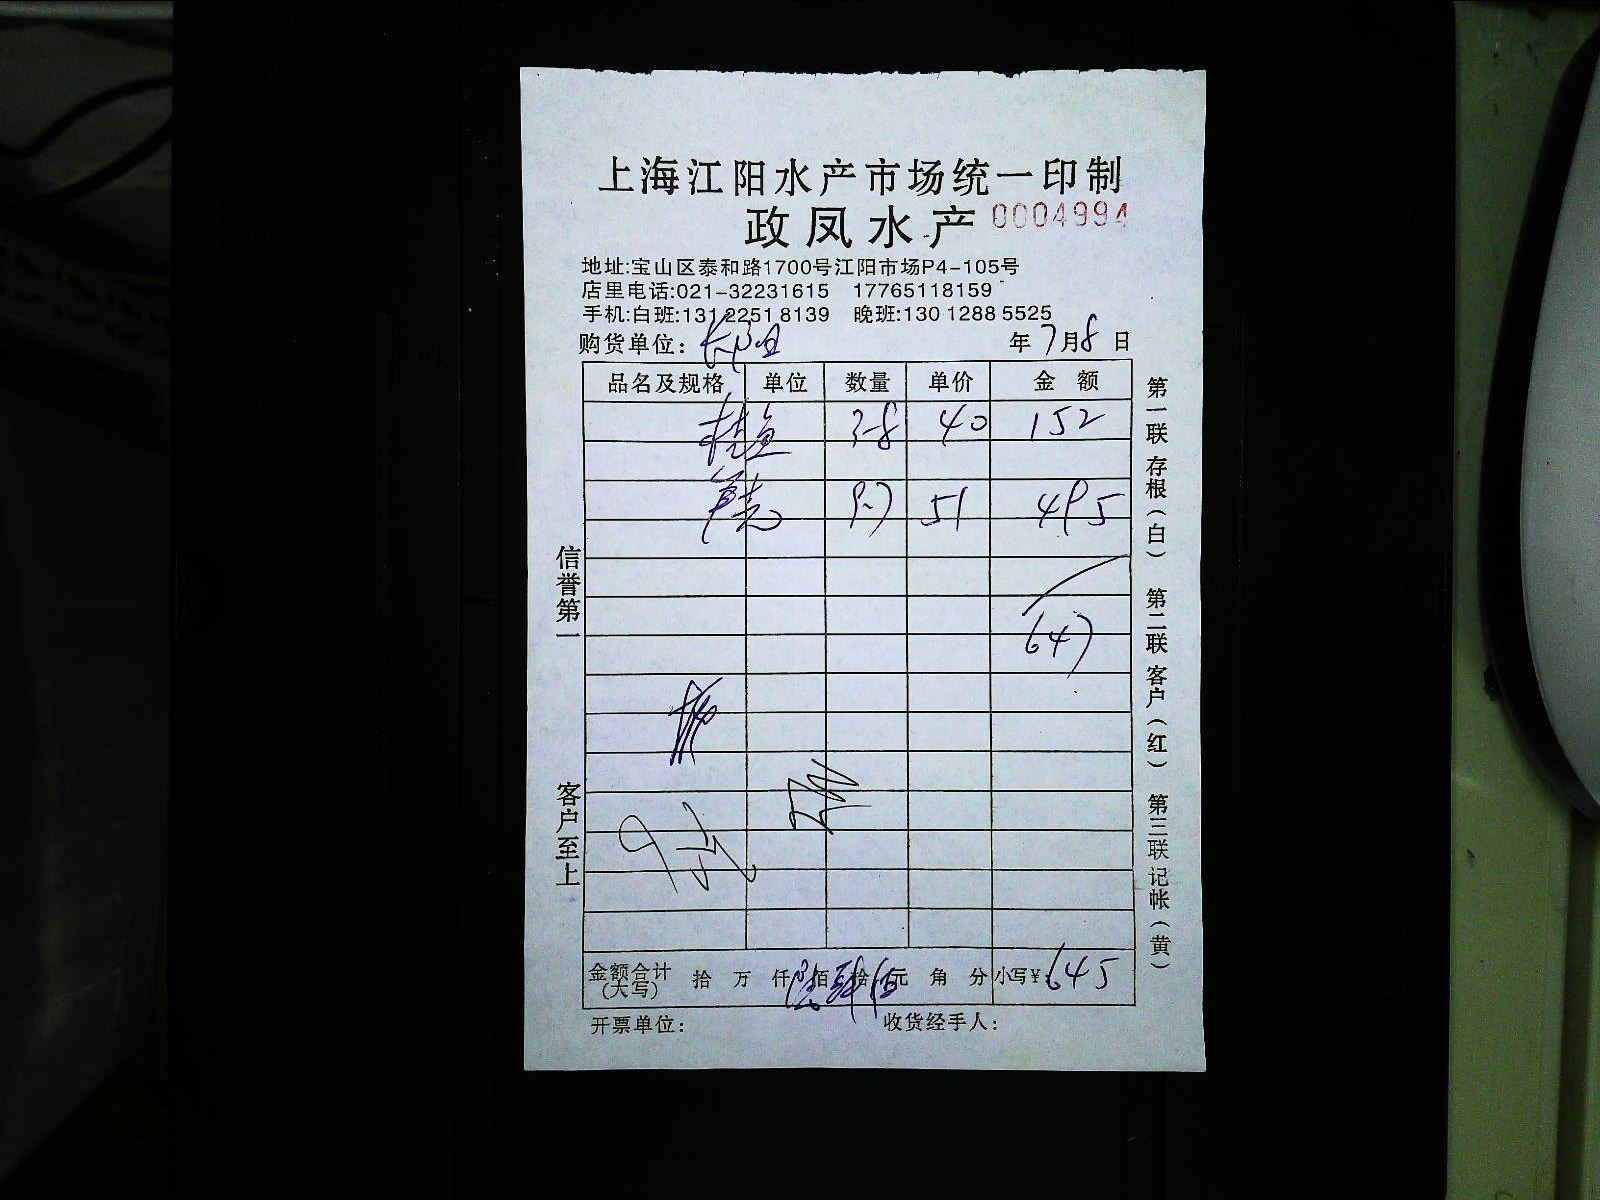 上海江阳水产市场统一印制
政凤水产 0004994
地址:宝山区泰和路1700号江阳市场P4-105号
店里电话:021-32231615 17765118159
手机:白班:131 2251 8139 晚班:130 1288 5525
购货单位: 年7月8日
品名及规格 单位 数量 单价 金额
桂鱼 3-8 40 152
9-7 51 495
647
金额合计(大写) 拾 万 仟 陆佰 肆拾 伍元 角 分 小写¥:645
开票单位: 收货经手人:
信誉第一
客户至上
第一联存根(白) 第二联客户(红) 第三联记帐(黄)